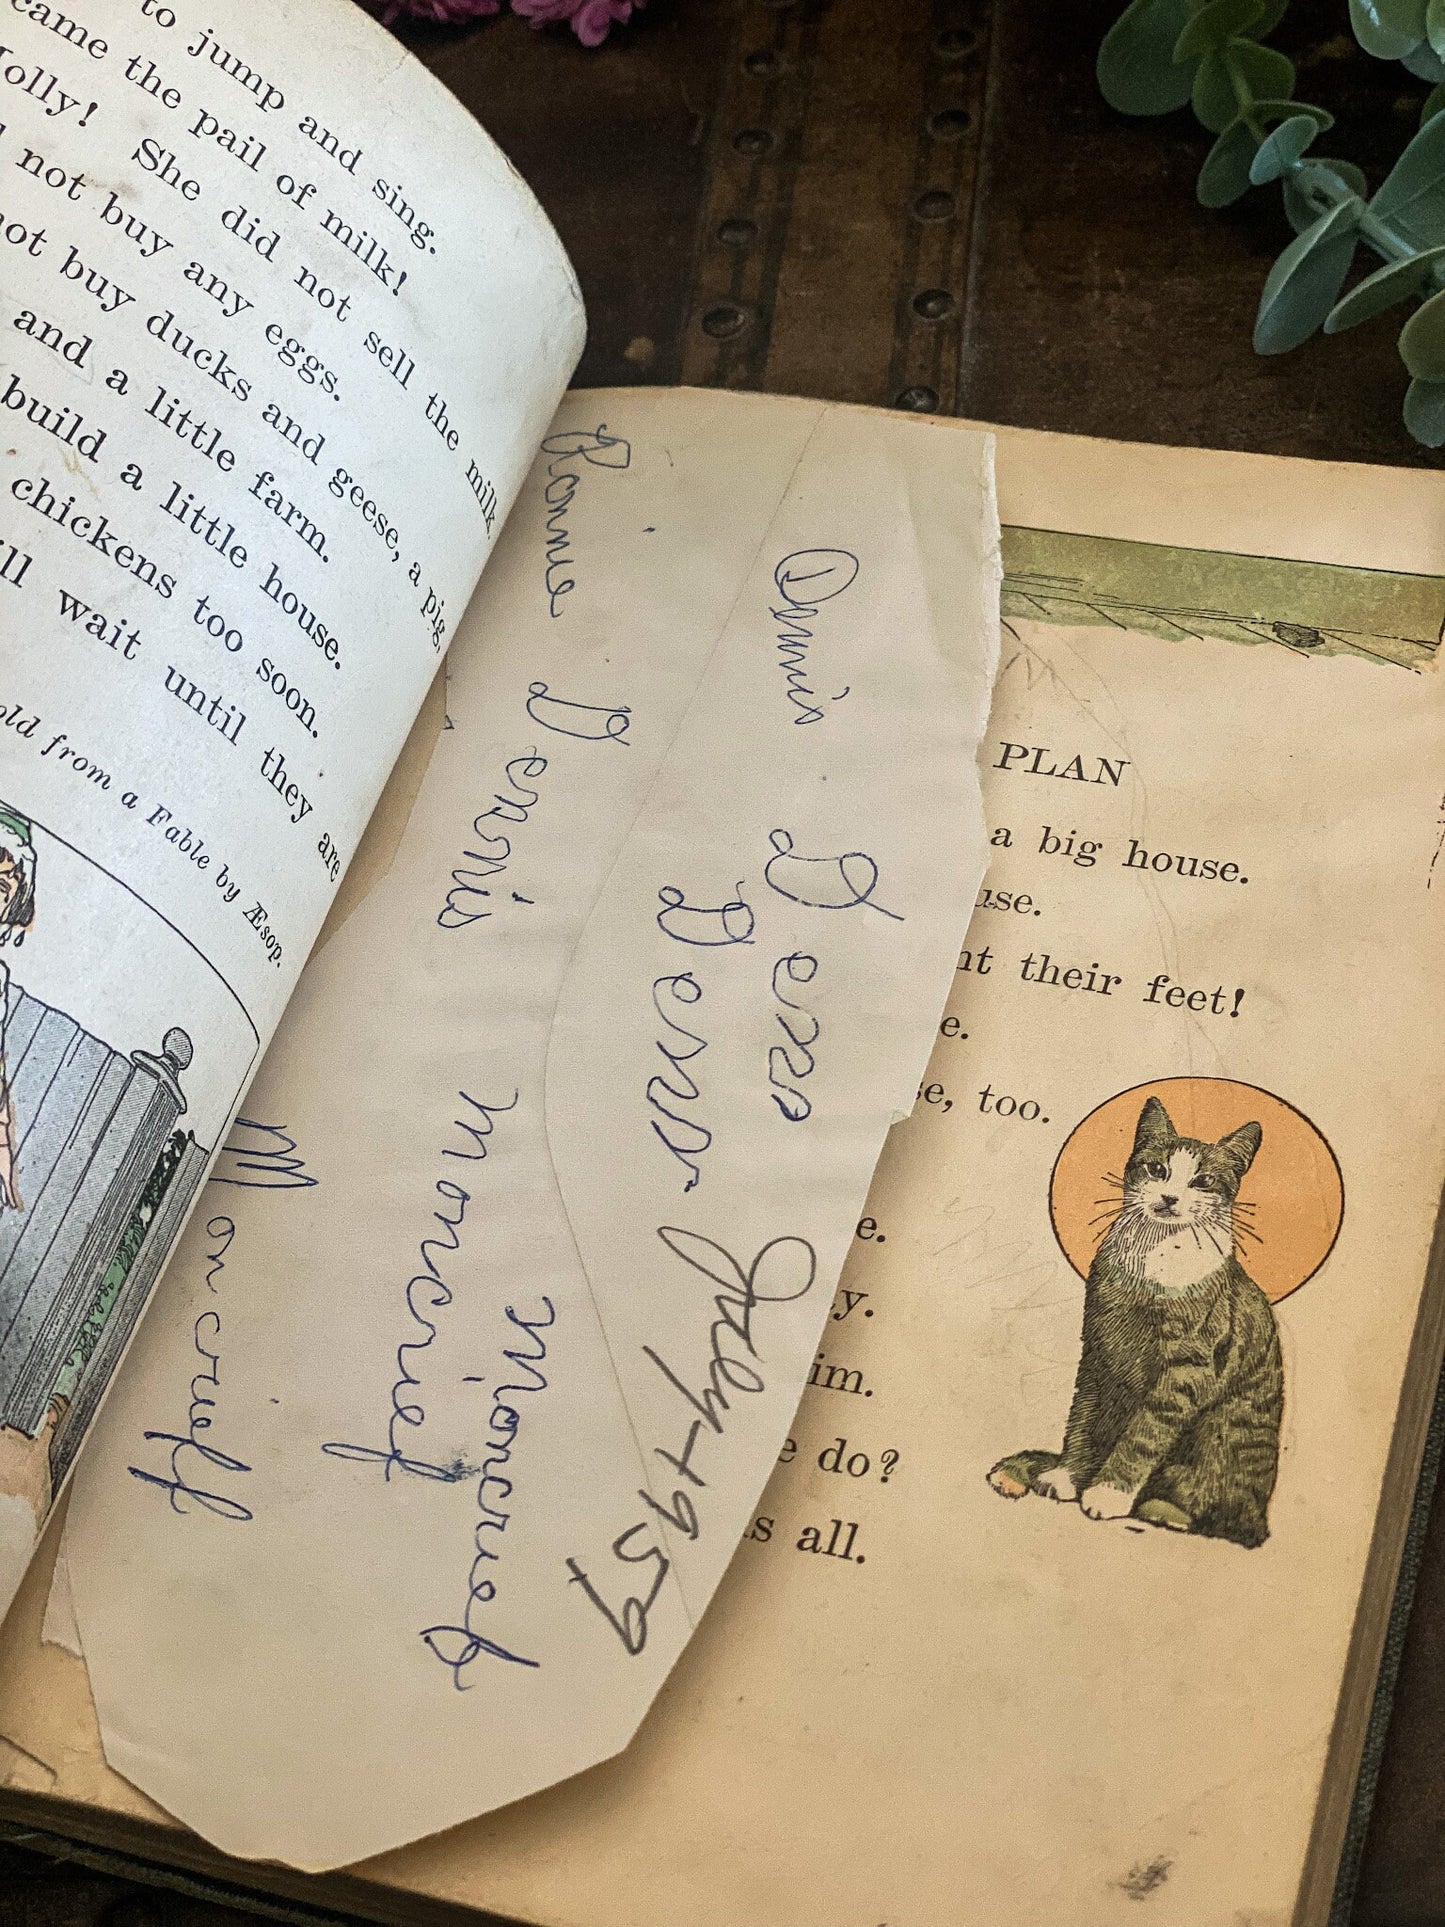 to jump and sing.
came the pail of milk!
Molly! She did not sell the milk,
not buy any eggs.
not buy ducks and geese, a pig,
and a little farm.
build a little house.
chickens too soon.
ill wait until they are
old from a Fable by Æsop.
Ronnie Dennis Moncrieff
Dennis Moncrief
Derr Moncrief
Derr
July 1959
PLAN
a big house.
use.
nt their feet!
e.
se, too.
e.
y.
im.
e do?
s all.